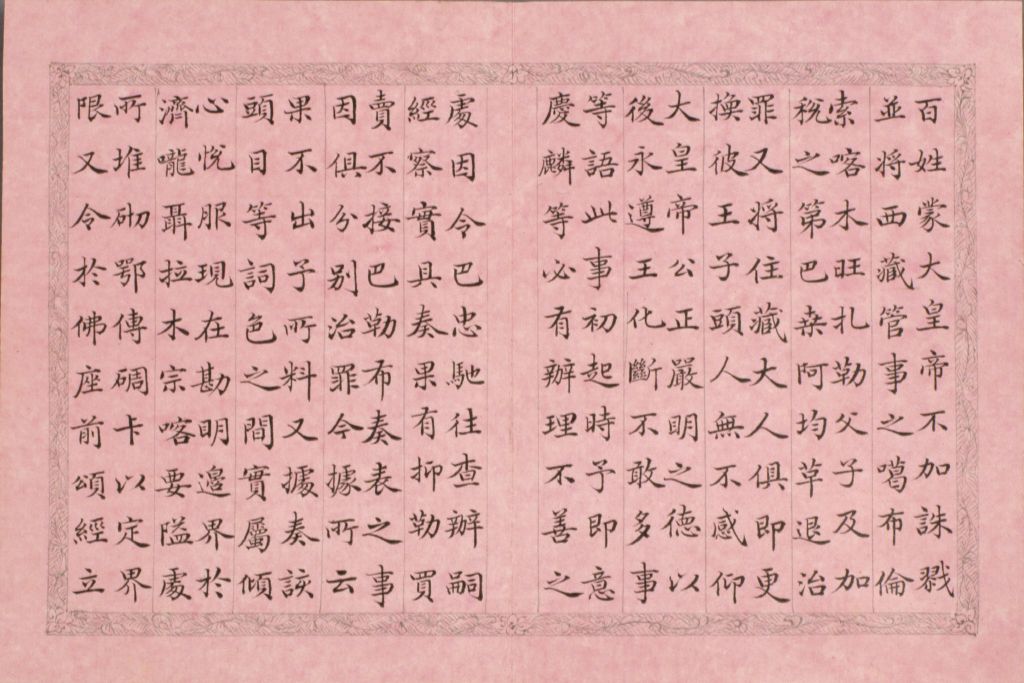 百姓蒙大皇帝不加誅戮
並將西藏管事之噶布倫
索喀木旺扎勒父子及加
稅之第巴桒阿均草退治
罪又將住藏大人俱即更
換彼王子頭人無不感仰
大皇帝公正嚴明之德以
後永遵王化斷不敢多事
等語此事初起時予即意
慶麟等必有辦理不善之
處因令巴忠馳往查辦嗣
經察實具奏果有抑勒買
賣不接巴勒布奏表之事
因俱分別治罪今據所云
果不出予所料又據奏該
頭目等詞色之間實屬傾
心悅服現在勘明邊界於
濟嚨聶拉木宗喀要隘處
所堆砌鄂傳碉卡以定界
限又令於佛座前頌經立